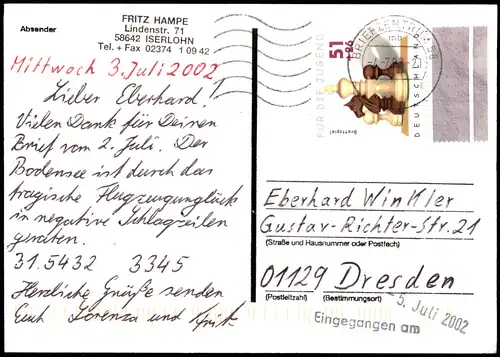 Absender
FRITZ HAMPE
Lindenstr. 71
58642 ISERLOHN
Tel. + Fax 02374 1 09 42
Mittwoch 3. Juli 2002
Lieber Eberhard!
Vielen Dank für Deinen
Brief vom 2. Juli. Der
Bodensee ist durch das
tragische Flugzeugunglück
in negative Schlagzeilen
geraten.
31.5432 3345
Herzliche Grüße senden
Euch Lorenza und Fritz
FÜR DIE JUGEND
51
+26
Brettspiel
DEUTSCHLAND
BRIEFZENTRUM 58
mb
21
Eberhard Winkler
Gustav-Richter-Str. 21
(Straße und Hausnummer oder Postfach)
01129 Dresden
(Postleitzahl) (Bestimmungsort)
Eingegangen am
5. Juli 2002